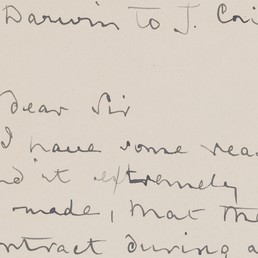 Darwin to J.
dear Sir
I have some
it extremely
made, that the
during a